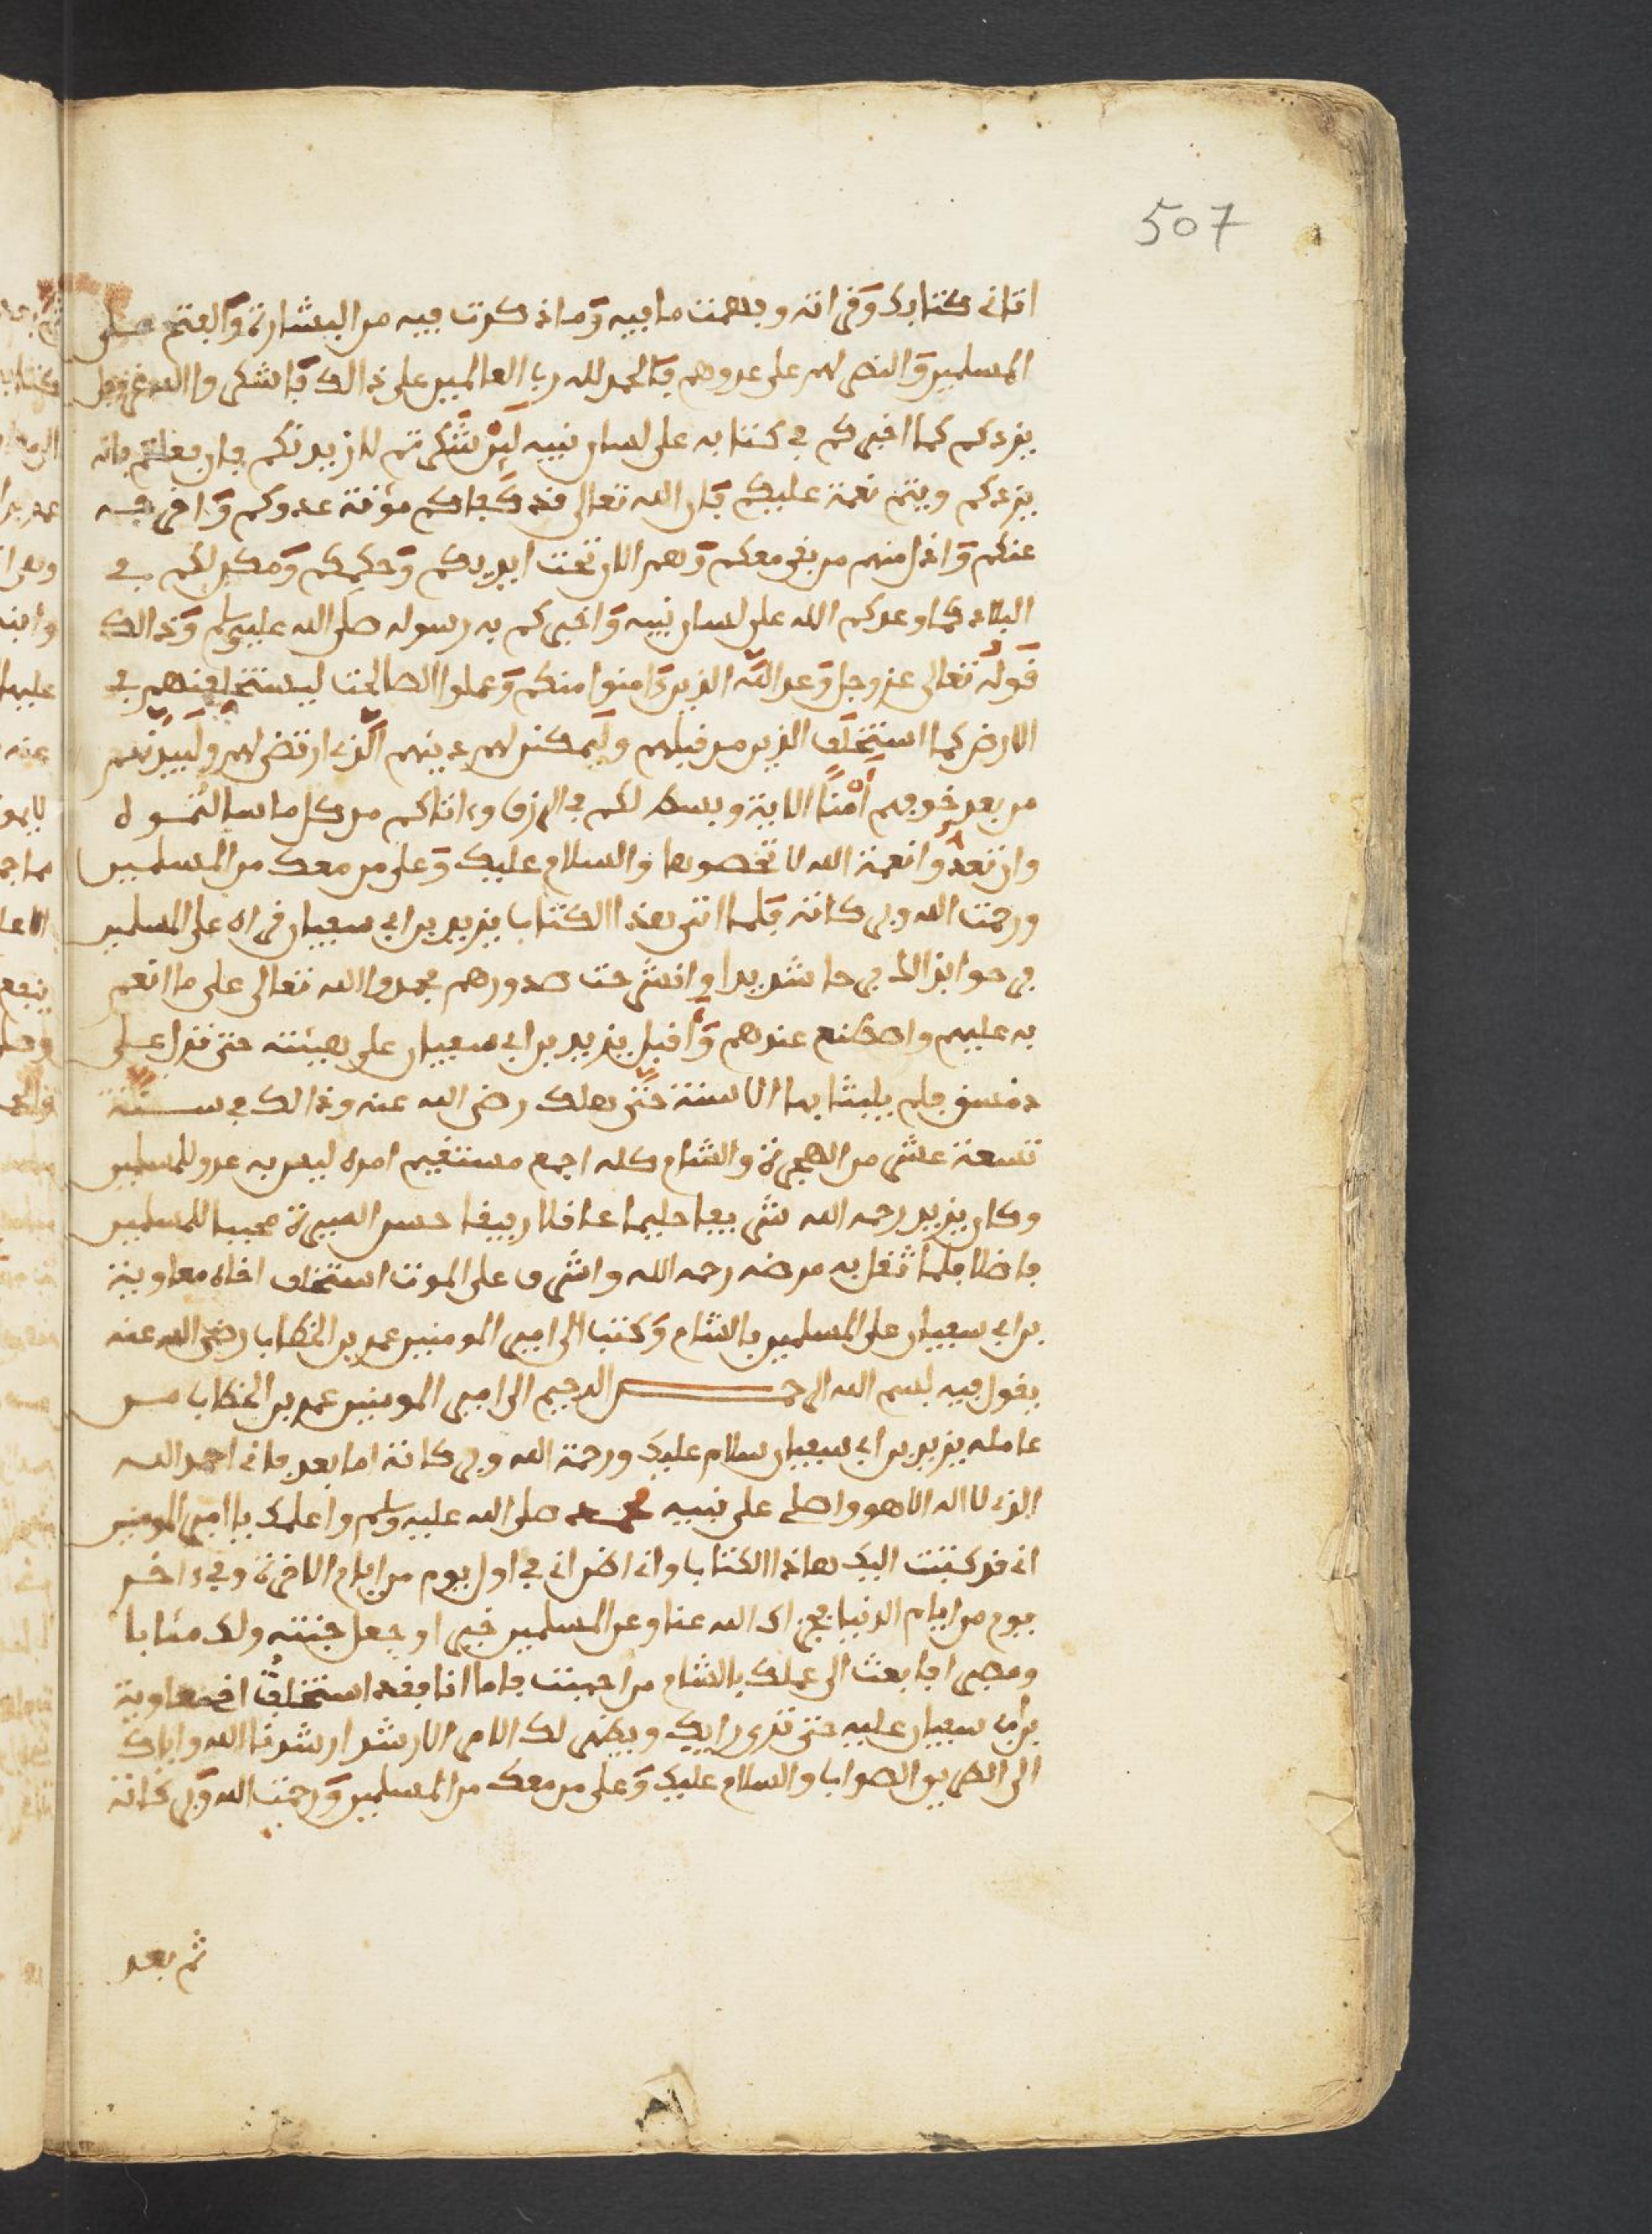 507
اتاني كتابك وقراته وفهمت ما فيه وما ذكرت فيه من البشارة والفتح على
المسلمين والنصر لهم على عدوهم فالحمد لله رب العالمين على ذالك فاشكروا الله عز وجل
يزدكم كما اخبركم في كتابه على لسان نبيه لين شكرتم لازيدنكم فان فعلتم فانه
يزدكم ويتم نعمة عليكم فان الله تعالى قد كفاكم مؤنة عدوكم واخرجه
عنكم واذل منهم من بقي معكم وهم الان تحت ايديكم وحكمكم ومكن لكم في
البلاد كما وعدكم الله على لسان نبيه واخبركم به رسوله صلى الله عليه وسلم وذالك
قوله تعالى عز وجل وعد الله الذين ءامنوا منكم وعملوا الصالحت ليستخلفنهم في
الارض كما استخلف الذين من قبلهم وليمكنن لهم دينهم الذي ارتضى لهم وليبدلنهم
من بعد خوفهم امنا الاية وبسط لكم في الرزق وءاتاكم من كل ما سالتموه
وان تعدوا نعمة الله لا تحصوها والسلام عليك وعلى من معك من المسلمين
ورحمت الله وبركاته فلما اتى هذا الكتاب يزيد بن ابي سفيان قراه على المسلمين
فرحوا بذالك فرحا شديدا وانشرحت صدورهم فحمدوا الله تعالى على ما انعم
به عليهم واصطنع عندهم واقبل يزيد بن ابي سفيان على هيئته حتى نزل على
دمشق فلم يلبث بها الا سنة حتى هلك رضي الله عنه وذالك في سنة
تسعة عشر من الهجرة والشام كله اجمع مستقيم امره ليس به عدو للمسلمين
وكان يزيد رحمه الله شريفا حليما عاقلا رفيقا حسن السيرة محببا للمسلمين
فاضلا فلما ثقل به مرضه رحمه الله واشرف على الموت استخلف اخاه معاوية
بن ابي سفيان على المسلمين بالشام وكتب الى امير المومنين عمر بن الخطاب رضي الله عنه
يقول فيه بسم الله الرحمن الرحيم الى امير المومنين عمر بن الخطاب من
عامله يزيد بن ابي سفيان سلام عليك ورحمة الله وبركاته اما بعد فاني احمد الله
الذي لا اله الا هو واصلي على نبيه محمد صلى الله عليه وسلم واعلمك يا امير المومنين
اني قد كتبت اليك هاذا الكتاب واني اظن اني في اول يوم من ايام الاخرة وفي ءاخر
يوم من ايام الدنيا فجزاك الله عنا وعن المسلمين خيرا وجعل جنته ولك مئابا
ومصيرا فابعث الى عملك بالشام من احببت فاما انا فقد استخلفت اخي معاوية
بن ابي سفيان عليه حتى ترى رايك ويظهر لك الامر الارشد ارشدنا الله واياك
الى الطريق الصواب والسلام عليك وعلى من معك من المسلمين ورحمت الله وبركاته
ثم بعد